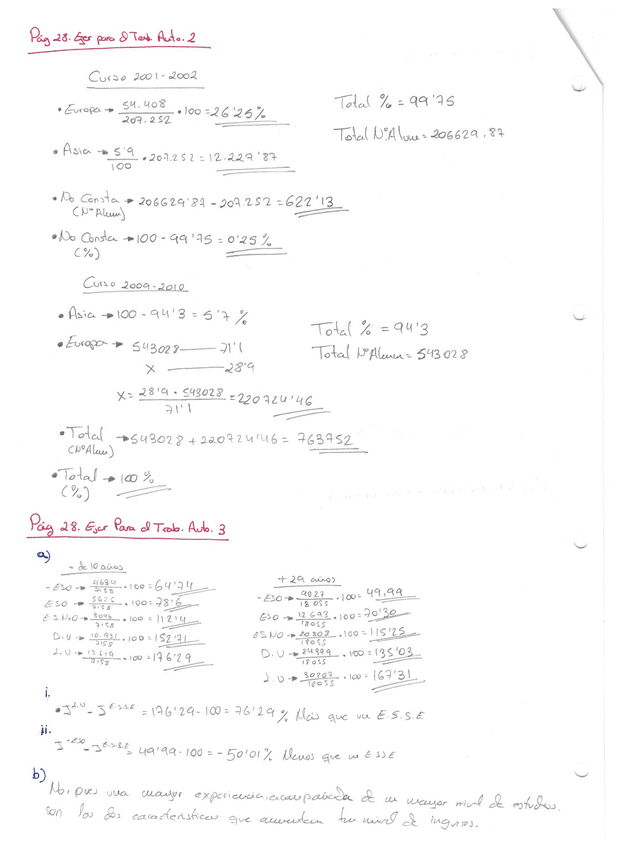 Pág 28. Ejer para el Trab. Auto. 2
Curso 2001-2002
• Europa → 54.408 / 207.252 · 100 = 26'25%
Total % = 99'75
• Asia → 5'9 / 100 · 207.252 = 12.227'87
Total Nº Alum = 206629.87
• No Consta → 206629'87 - 207.252 = 622'13
(Nº Alum)
• No Consta → 100 - 99'75 = 0'25%
(%)
Curso 2009-2010
• Asia → 100 - 94'3 = 5'7 %
Total % = 94'3
• Europa → 543028 — 71'1
Total Nº Alum = 543028
X — 28'9
X = 28'9 · 543028 / 71'1 = 220724'46
• Total → 543028 + 220724'46 = 763752
(Nº Alum)
• Total → 100 %
(%)
Pág 28. Ejer Para el Trab. Auto. 3
a)
- de 10 años
+ 29 años
- ESO → 4634 / 7158 · 100 = 64'74
- ESO → 9027 / 18055 · 100 = 49.99
ESO → 5625 / 7158 · 100 = 78'6
ESO → 12693 / 18055 · 100 = 70'30
E.S.N.O → 8046 / 7158 · 100 = 112'4
ESNO → 20808 / 18055 · 100 = 115'25
D.U → 10.931 / 7158 · 100 = 152'71
D.U → 24399 / 18055 · 100 = 135'03
L.U → 12619 / 7158 · 100 = 176'29
L.U → 30207 / 18055 · 100 = 167'31
i.
• I L.U - I E.S.S.E = 176'29 - 100 = 76'29 % Más que un E.S.S.E
ii.
I -ESO - I E.S.S.E = 49'99 - 100 = - 50'01 % Menos que un ESSE
b)
No, pues una mayor experiencia, acompañada de un mayor nivel de estudios,
son las dos características que aumentan tu nivel de ingresos.